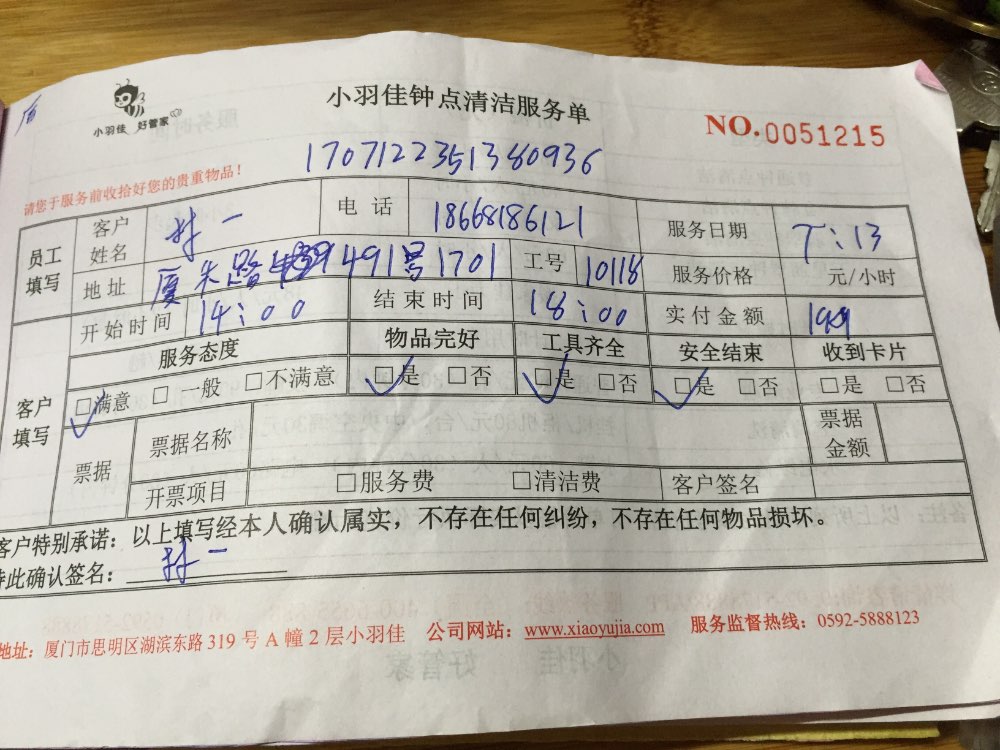 小羽佳 好管家
小羽佳钟点清洁服务单
NO.0051215
1707122351380936
请您于服务前收拾好您的贵重物品！
员工填写 客户姓名 林一 电话 18668186121 服务日期 7:13
地址 厦禾路 491号1701 工号 10118 服务价格 元/小时
开始时间 14:00 结束时间 18:00 实付金额
客户填写 服务态度 物品完好 工具齐全 安全结束 收到卡片
□满意 □一般 □不满意 □是 □否 □是 □否 □是 □否 □是 □否
票据 票据名称 票据金额
开票项目 □服务费 □清洁费 客户签名
客户特别承诺：以上填写经本人确认属实，不存在任何纠纷，不存在任何物品损坏。
特此确认签名： 林一
地址：厦门市思明区湖滨东路 319 号 A 幢 2 层小羽佳 公司网站：www.xiaoyujia.com 服务监督热线：0592-5888123